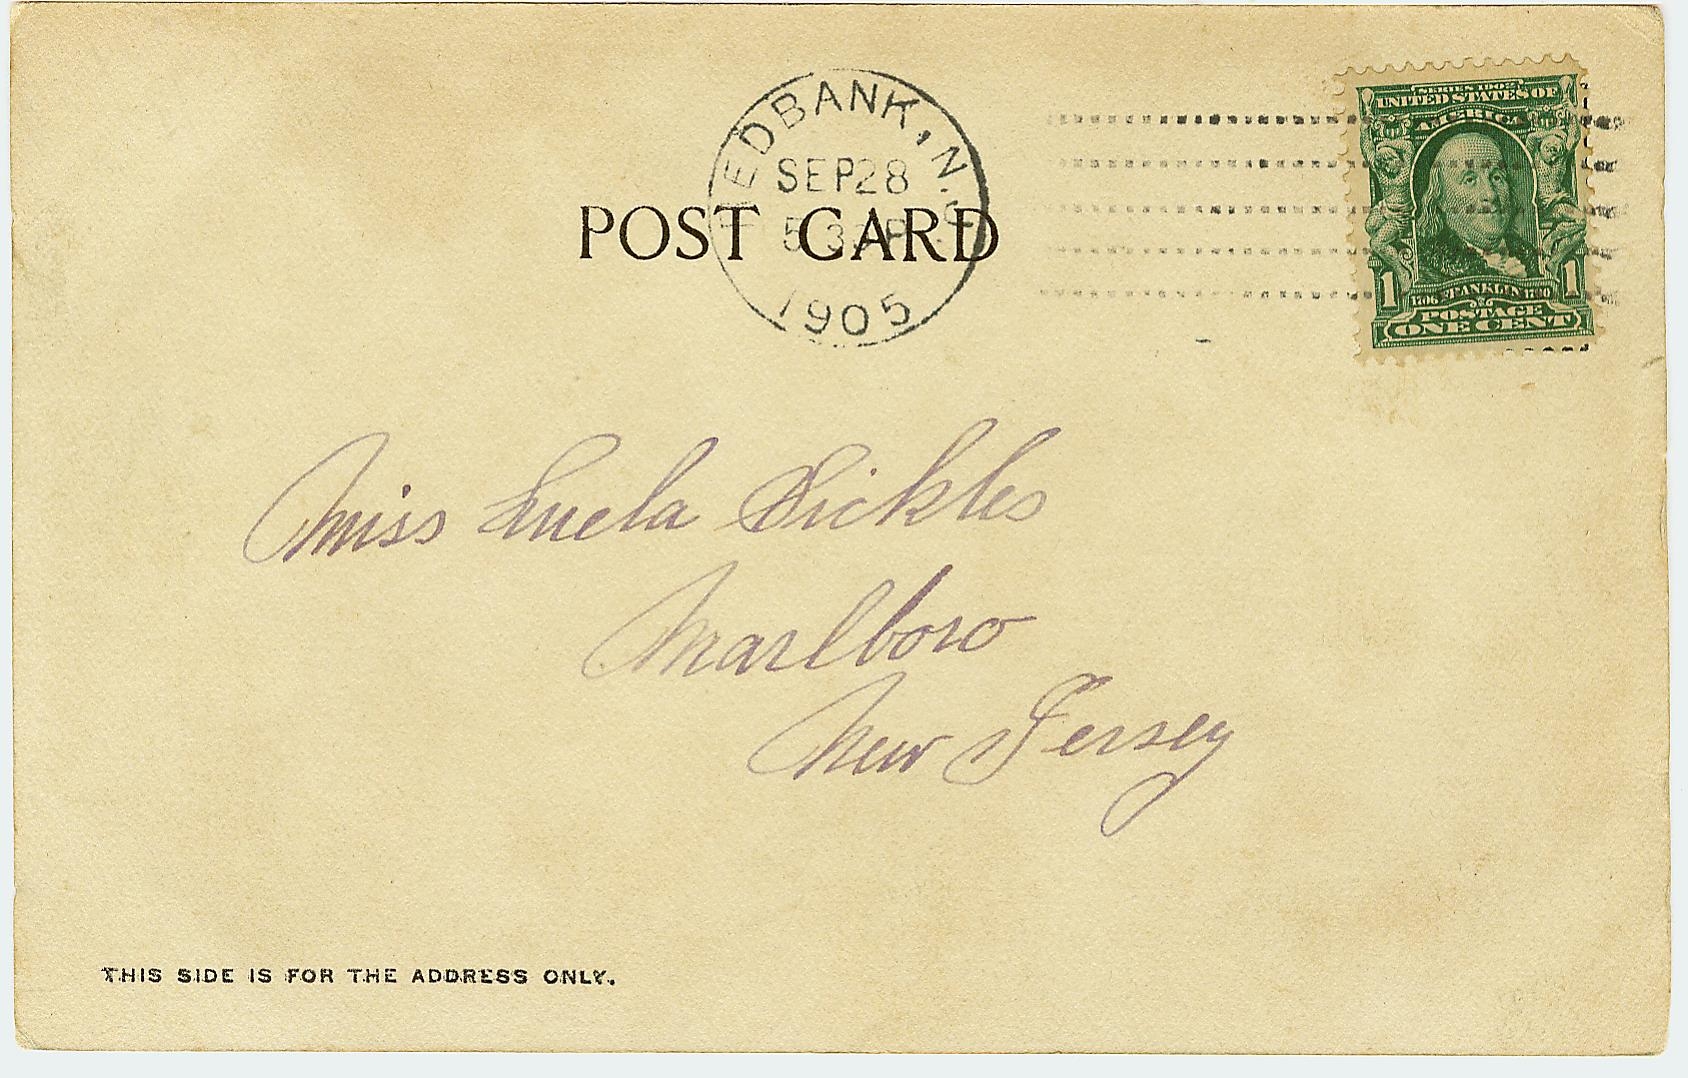 REDBANK, N.J.
SEP 28
5 3 P
1905
POST CARD
SERIES 1902
UNITED STATES OF
AMERICA
1 1
1706 FRANKLIN 1790
POSTAGE
ONE CENT
Miss Luela Sickles
Marlboro
New Jersey
THIS SIDE IS FOR THE ADDRESS ONLY.